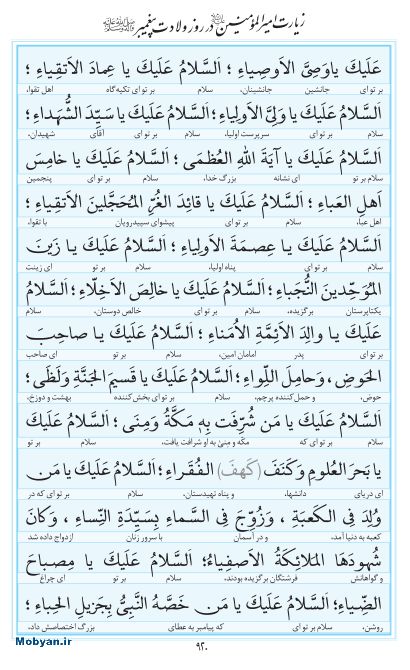 زیارت امیرالمؤمنین در روز ولادت پیغمبر
عَلَيكَ ياوَصِىَّ الاَوصِياءِ ؛ اَلسَّلامُ عَلَيكَ يا عِمادَ الاَتقِياءِ ؛
بر تو ای جانشین جانشینان، سلام بر تو ای تکیه‌گاه اهل تقوا،
اَلسَّلامُ عَلَيكَ يا وَلِىَّ الاَولِياءِ؛ اَلسَّلامُ عَلَيكَ يا سَيِّدَ الشُّهَداءِ؛
سلام بر تو ای سرپرست اولیا، سلام بر تو ای آقای شهیدان،
اَلسَّلامُ عَلَيكَ يا آيَةَ اللهِ العُظمَى ؛ اَلسَّلامُ عَلَيكَ يا خامِسَ
سلام بر تو ای نشانه بزرگ خدا، سلام بر تو ای پنجمین
اَهلِ العَباءِ ؛ اَلسَّلامُ عَلَيكَ يا قائِدَ الغُرِّ المُحَجَّلينَ الاَتقِياءِ ؛
اهل عبا، سلام بر تو ای پیشوای سپیدرویان با تقوا،
اَلسَّلامُ عَلَيكَ يا عِصمَةَ الاَولِياءِ ؛ اَلسَّلامُ عَلَيكَ يا زَينَ
سلام بر تو ای پناه اولیا، سلام بر تو ای زینت
المُوَحِّدينَ النُّجَباءِ؛ اَلسَّلامُ عَلَيكَ يا خالِصَ الاَخِلّاءِ ؛ اَلسَّلامُ
یکتاپرستان برگزیده، سلام بر تو ای خالص دوستان، سلام
عَلَيكَ يا والِدَ الاَئِمَّةِ الاُمَناءِ ؛ اَلسَّلامُ عَلَيكَ يا صاحِبَ
بر تو ای پدر امامان امین، سلام بر تو ای صاحب
الحَوضِ ، وَحامِلَ اللِّواءِ؛ اَلسَّلامُ عَلَيكَ يا قَسيمَ الجَنَّةِ وَلَظَى؛
حوض، و حمل‌کننده پرچم، سلام بر تو ای بخش‌کننده بهشت و دوزخ،
اَلسَّلامُ عَلَيكَ يا مَن شُرِّفَت بِهِ مَكَّةُ وَمِنَى ؛ اَلسَّلامُ عَلَيكَ
سلام بر تو ای که مکّه و منی به او شرافت یافت، سلام بر تو
يا بَحرَ العُلومِ وَكَنَفَ (كَهفَ) الفُقَراءِ؛ اَلسَّلامُ عَلَيكَ يا مَن
ای دریای دانشها، و پناه تهیدستان، سلام بر تو ای که در
وُلِدَ فِى الكَعبَةِ ، وَزُوِّجَ فِى السَّماءِ بِسَيِّدَةِ النِّساءِ ، وَكانَ
کعبه به دنیا آمد، و در آسمان با سرور زنان ازدواج داده شد
شُهودَهَا المَلائِكَةُ الاَصفِياءُ؛ اَلسَّلامُ عَلَيكَ يا مِصباحَ
و گواهانش فرشتگان برگزیده بودند، سلام بر تو ای چراغ
الضِّياءِ؛ اَلسَّلامُ عَلَيكَ يا مَن خَصَّهُ النَّبِىُّ بِجَزيلِ الحِباءِ ؛
روشن، سلام بر تو ای که پیامبر به عطای بزرگ اختصاصش داد،
۹۲۰
Mobyan.ir